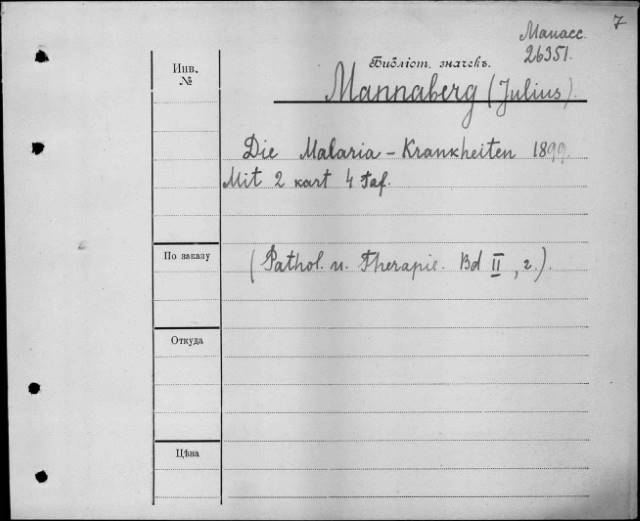 7
Манасс.
26351.
Библіот. значекъ.
Инв.
№
Mannaberg (Julius).
Die Malaria - Krankheiten 1899.
Mit 2 kart 4 Taf.
По заказу
(Pathol. u. Therapie. Bd II, 2.).
Откуда
Цѣна